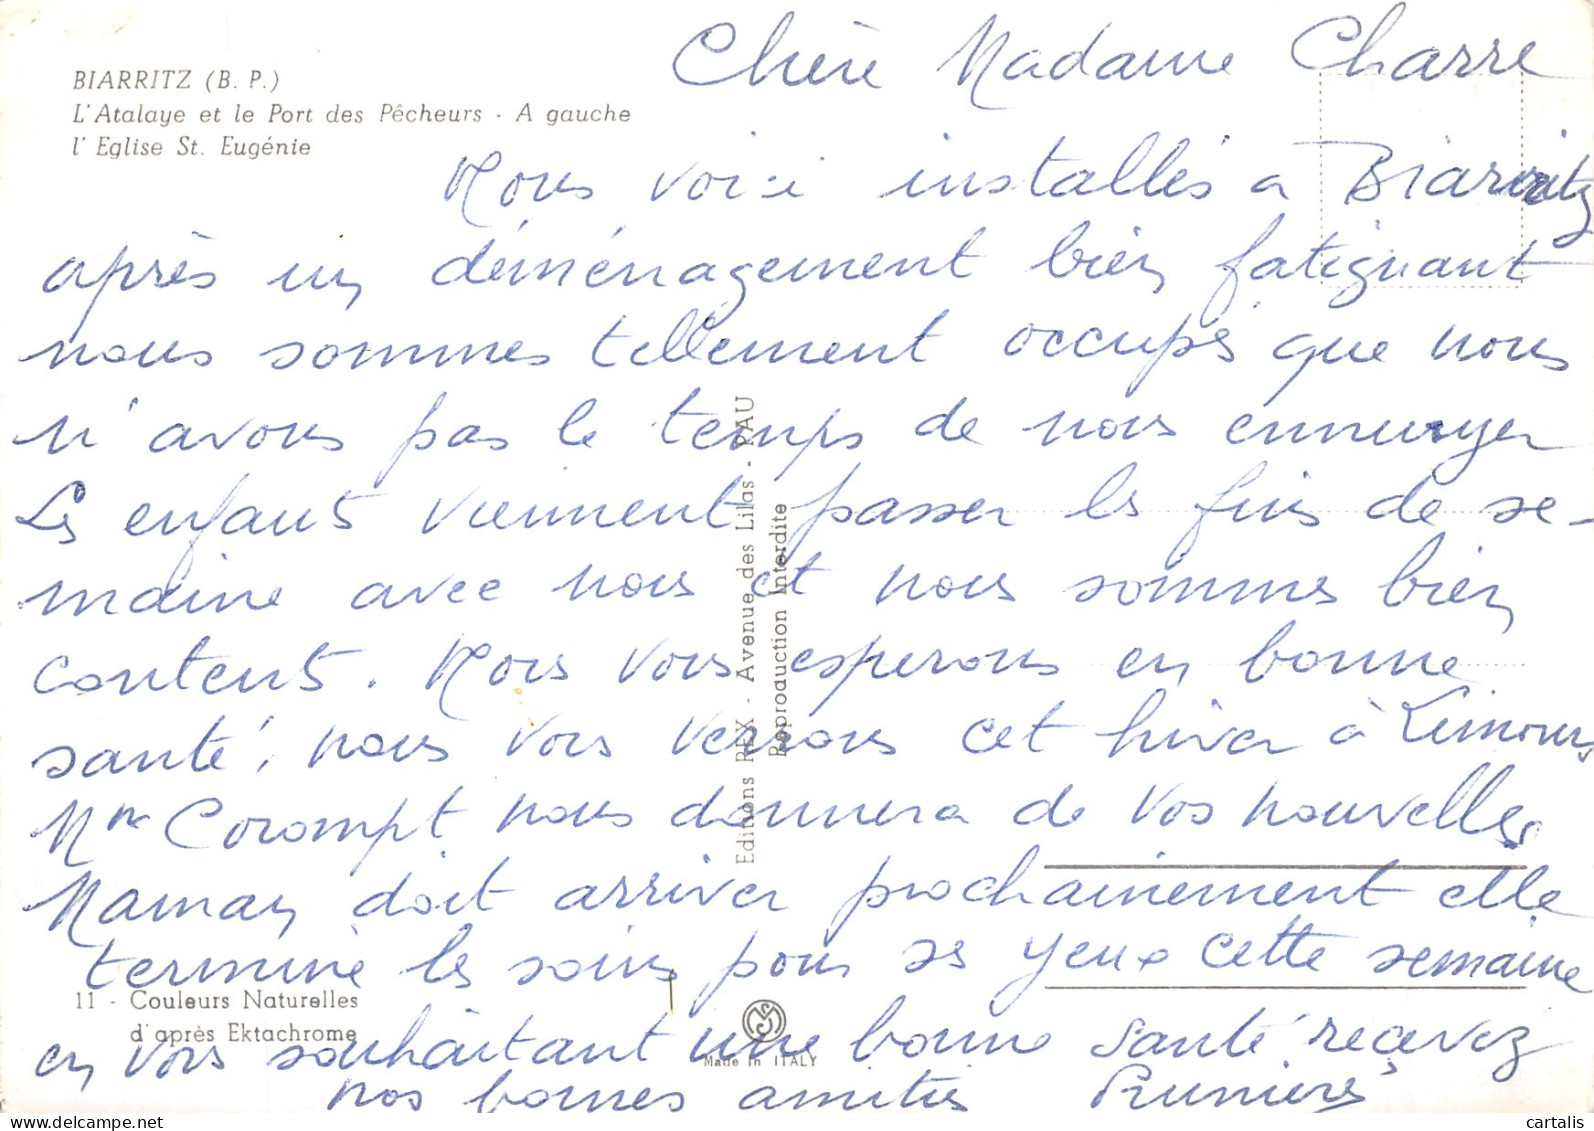 BIARRITZ (B. P.)
L'Atalaye et le Port des Pêcheurs - A gauche
l' Eglise St. Eugénie
Chère Madame Charre
Nous voici installés a Biarritz
après un déménagement bien fatiguant
nous sommes tellement occupés que nous
n'avons pas le temps de nous ennuyer
Les enfants viennent passer les fins de se-
maine avec nous et nous sommes bien
contents. Nous vous esperons en bonne
santé, nous vous verrons cet hiver à Limours
Mme Corompt nous donnera de vos nouvelles
Maman doit arriver prochainement elle
termine les soins pour ses yeux cette semaine
en vous souhaitant une bonne santé, recevez
nos bonnes amitiés
Editions REX - Avenue des Lilas - PAU
Reproduction Interdite
11 - Couleurs Naturelles
d'après Ektachrome
Made in ITALY
cartalis | cartalis.com